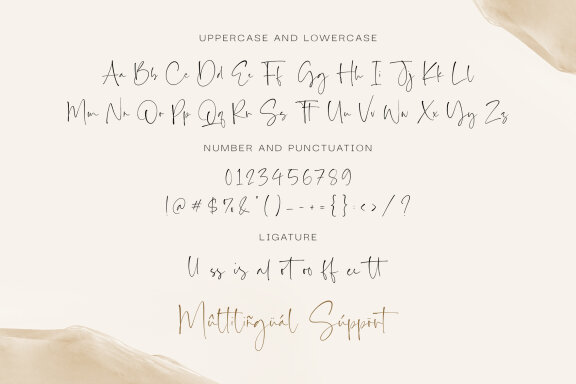 UPPERCASE AND LOWERCASE
Aa Bb Cc Dd Ee Ff Gg Hh Ii Jj Kk Ll
Mm Nn Oo Pp Qq Rr Ss Tt Uu Vv Ww Xx Yy Zz
NUMBER AND PUNCTUATION
0123456789
!@#$%&*()_-+={}:<>/?
LIGATURE
ll ss is al ot oo ff ee tt
Múltilingüál Súppört